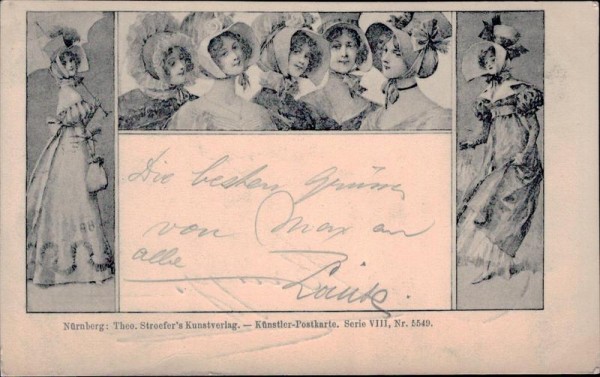 Die besten Grüsse
von Max an
alle
Nürnberg: Theo. Stroefer's Kunstverlag. — Künstler-Postkarte. Serie VIII, Nr. 5549.